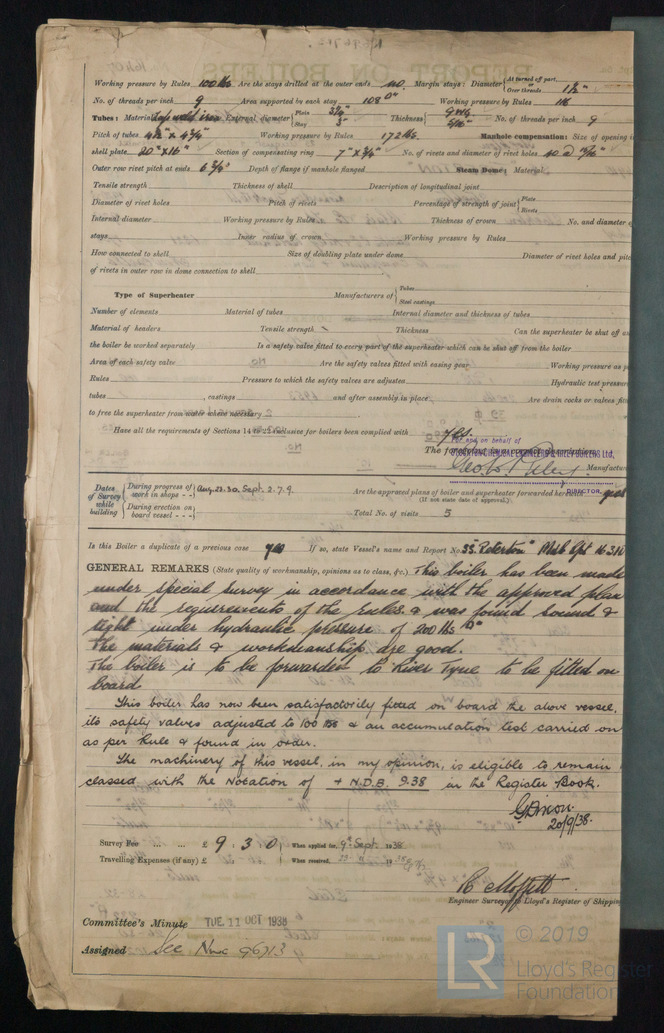 Working pressure by Rules 100 lbs Are the stays drilled at the outer ends no. Margin stays: Diameter { At turned off part, Over threads 1½"
No. of threads per inch 9 Area supported by each stay 108 □" Working pressure by Rules 118
Tubes: Material Lap weld iron External diameter { Plain 3¼" Stay 3" Thickness { 9 WG 5/16" No. of threads per inch 9
Pitch of tubes 4½" x 4¾" Working pressure by Rules 172 lbs Manhole compensation: Size of opening in
shell plate 20" x 16" Section of compensating ring 7" x ¾" No. of rivets and diameter of rivet holes 40 @ 15/16"
Outer row rivet pitch at ends 6¾" Depth of flange if manhole flanged Steam Dome: Material
Tensile strength Thickness of shell Description of longitudinal joint
Diameter of rivet holes Pitch of rivets Percentage of strength of joint { Plate Rivets
Internal diameter Working pressure by Rules Thickness of crown No. and diameter
stays Inner radius of crown Working pressure by Rules
How connected to shell Size of doubling plate under dome Diameter of rivet holes and pitch
of rivets in outer row in dome connection to shell
Type of Superheater Manufacturers of { Tubes Steel castings
Number of elements Material of tubes Internal diameter and thickness of tubes
Material of headers Tensile strength Thickness Can the superheater be shut off
the boiler be worked separately Is a safety valve fitted to every part of the superheater which can be shut off from the boiler
Area of each safety valve Are the safety valves fitted with easing gear Working pressure as
Rules Pressure to which the safety valves are adjusted Hydraulic test pressure
tubes castings and after assembly in place Are drain cocks or valves
to free the superheater from water where necessary
Have all the requirements of Sections 14 to inclusive for boilers been complied with Yes.
For and on behalf of
The foregoing is a correct description,
Geo. Riley Manufactu
DIRECTOR.
Dates of Survey while building { During progress of work in shops - - } Aug. 23. 30. Sept. 2. 7. 9. Are the approved plans of boiler and superheater forwarded herewith yes
(If not state date of approval.)
During erection on board vessel - - - Total No. of visits 5
Is this Boiler a duplicate of a previous case yes If so, state Vessel's name and Report No. SS. "Peterton" Mbh Rpt
GENERAL REMARKS (State quality of workmanship, opinions as to class, &c.) This boiler has been made
under special survey in accordance with the approved plan
and the requirements of the Rules. & was found sound &
tight under hydraulic pressure of 200 lbs □"
The materials & workmanship are good.
The boiler is to be forwarded to River Tyne to be fitted on
board
This boiler has now been satisfactorily fitted on board the above vessel,
its safety valves adjusted to 100 lbs & an accumulation test carried on
as per Rule & found in order.
The machinery of this vessel, in my opinion, is eligible to remain
classed with the Notation of + N.D.B. 9.38 in the Register Book.
G Dixon.
20/9/38.
Survey Fee ... ... £ 9 : 3 : 0 When applied for, 9th Sept. 1938
Travelling Expenses (if any) £ When received, 19
R Moffett
Engineer Surveyor to Lloyd's Register of Shipping
Committee's Minute TUE. 11 OCT 1938
Assigned See Nwc 96713
LR © 2019
Lloyd's Register
Foundation